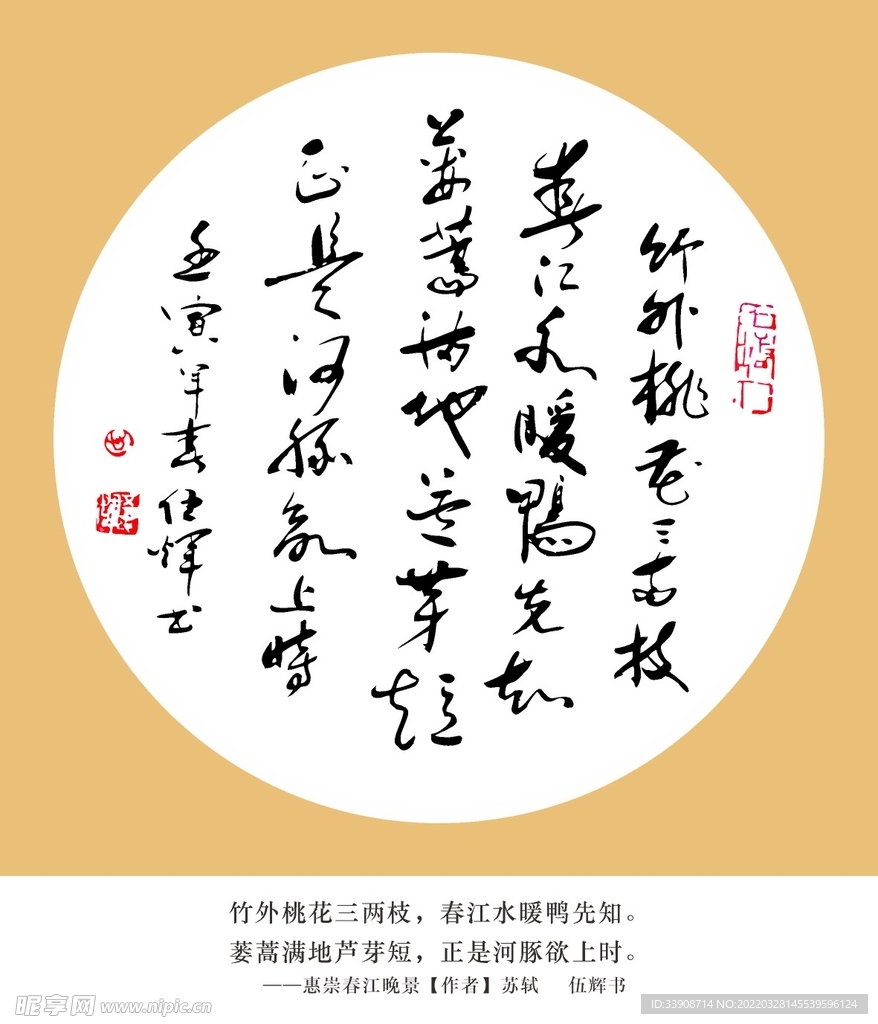 竹外桃花三两枝
春江水暖鸭先知
蒌蒿满地芦芽短
正是河豚欲上时
壬寅年春伍辉书
竹外桃花三两枝，春江水暖鸭先知。
蒌蒿满地芦芽短，正是河豚欲上时。
——惠崇春江晚景【作者】苏轼 伍辉书
昵享网 www.nipic.cn
ID:33908714 NO:20220328145539596124